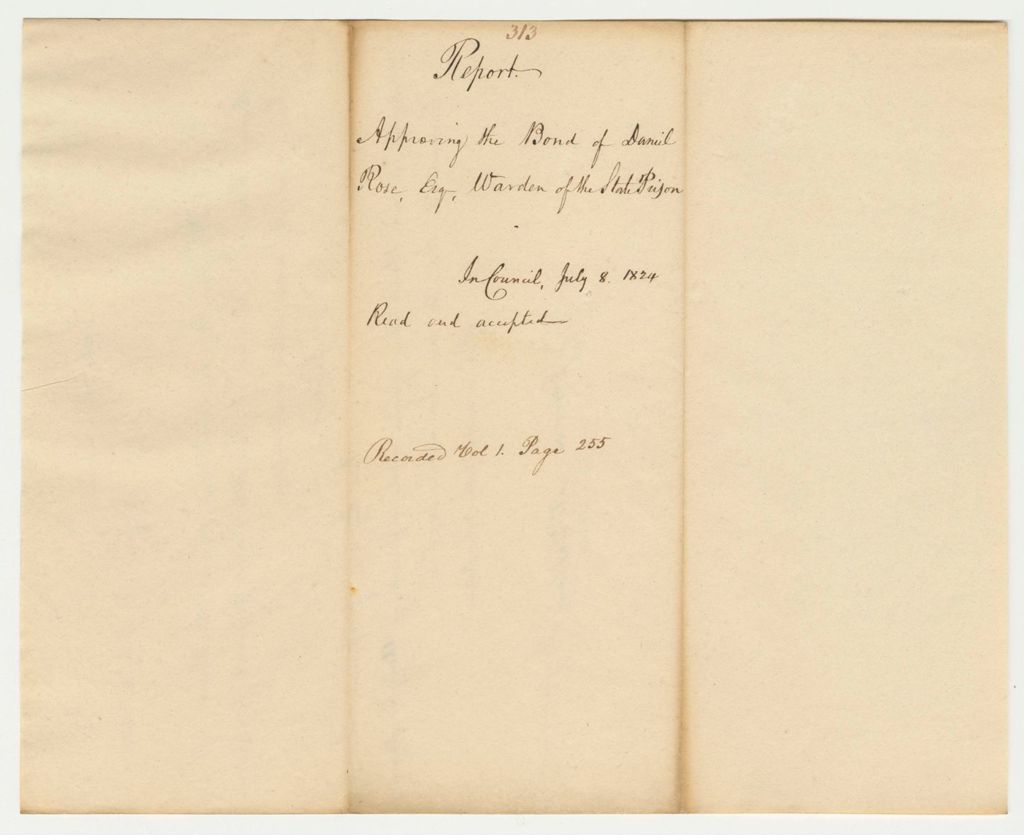 313
Report.
Approving the Bond of Daniel
Rose, Esq, Warden of the State Prison
In Council, July 8. 1824
Read and accepted
Recorded Vol 1. Page 255